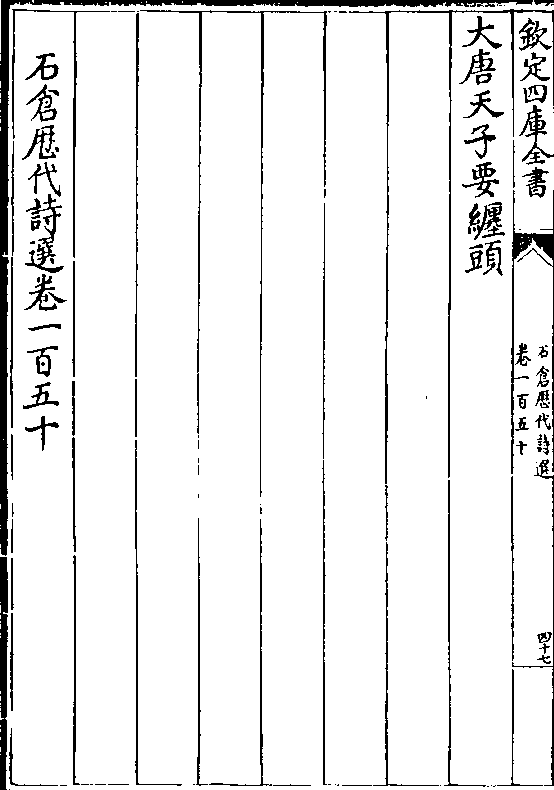 欽定四庫全書
石倉歷代詩選
卷一百五十
四十七
大唐天子要纏頭
石倉歷代詩選卷一百五十